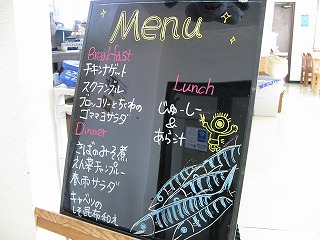 Menu
Breakfast
チキンナゲット
スクランブル
ブロッコリーとちくわの
ゴママヨサラダ
Dinner
さばのみそ煮
えん菜チャンプルー
春雨サラダ
キャベツの
しそ昆布和え
Lunch
じゅーしー
&
あら汁